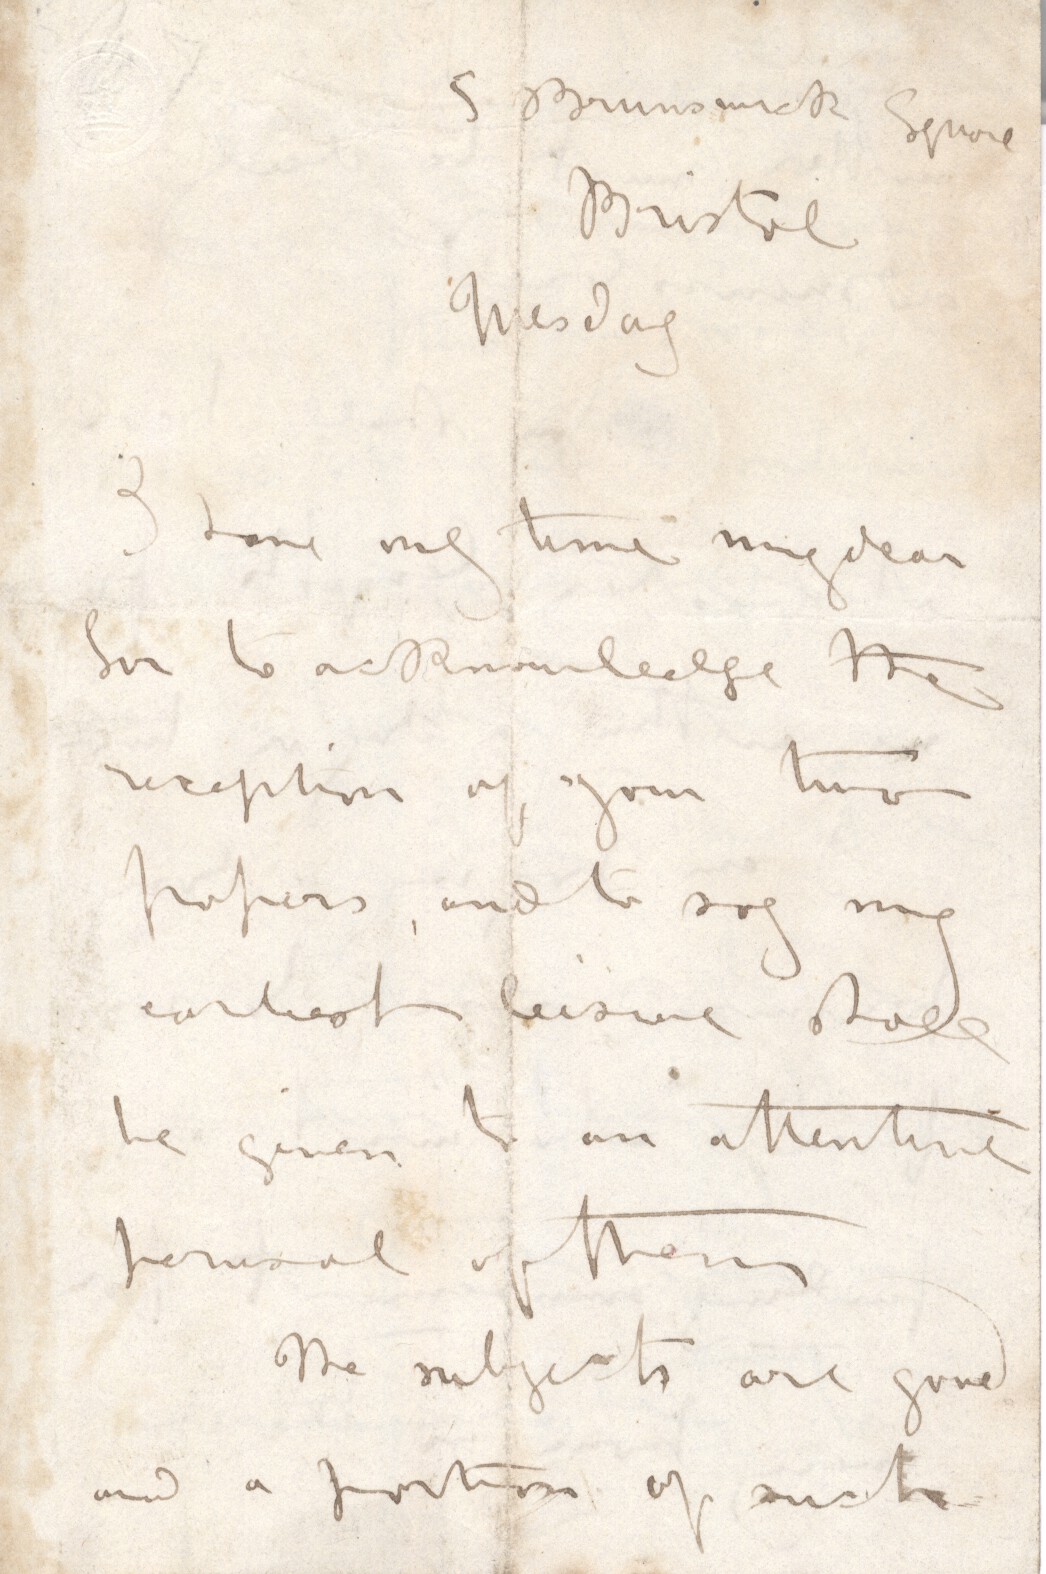 5 Brunswick Square
Bristol
Tuesday
I have only time my dear
Sir to acknowledge the
reception of your two
papers, and to say my
earliest leisure shall
be given to an attentive
perusal of them
The subjects are good
and a portion of such